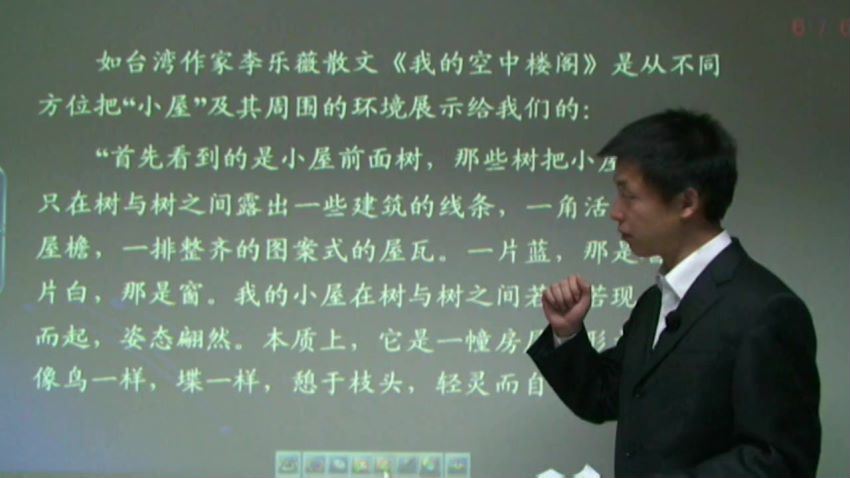 6 / 6
如台湾作家李乐薇散文《我的空中楼阁》是从不同
方位把“小屋”及其周围的环境展示给我们的：
“首先看到的是小屋前面树，那些树把小屋
只在树与树之间露出一些建筑的线条，一角活
屋檐，一排整齐的图案式的屋瓦。一片蓝，那是
片白，那是窗。我的小屋在树与树之间若 若现
而起，姿态翩然。本质上，它是一幢房 形
像鸟一样，堞一样，憩于枝头，轻灵而自